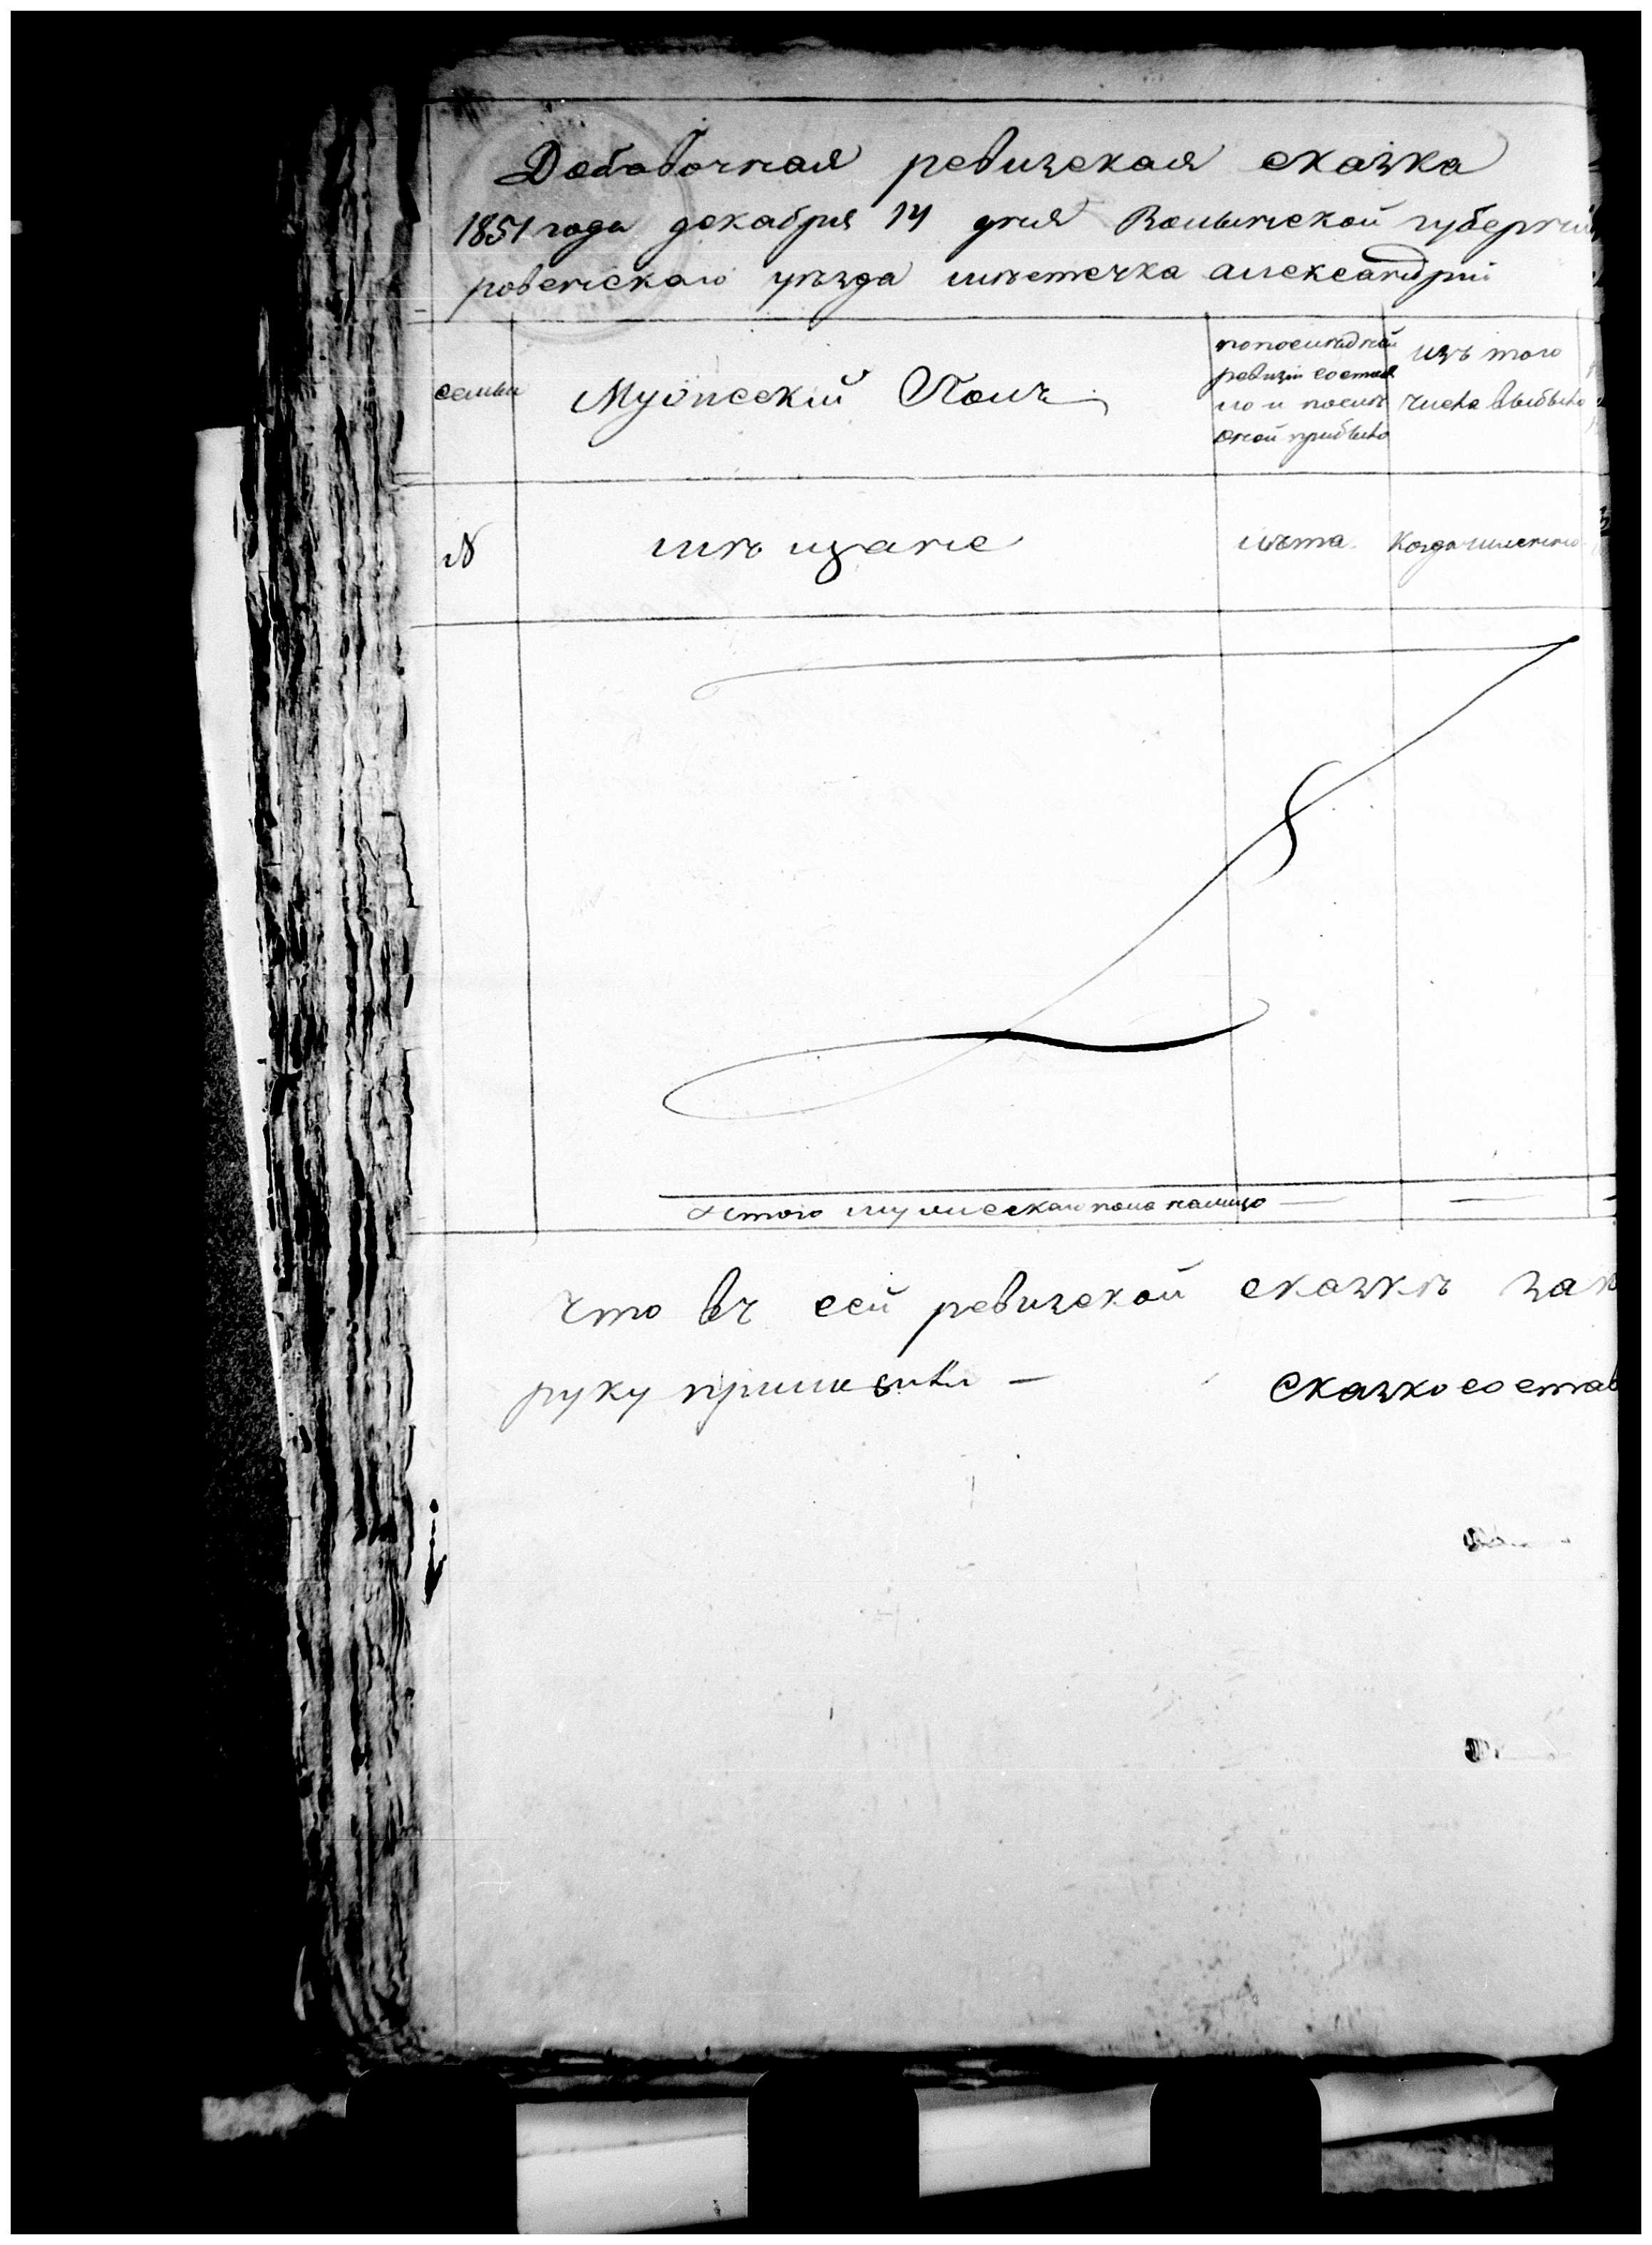 Добавочная ревизская сказка
1851 года декабря 14 дня Волынской губерний
ровенскаго уѣзда мѣстечка александріи
семьи
Мужпескій Полъ
попоследней
ревизіи состоя
ло и послѣ
оной прибыло
изъ того
числа выбыло
№
мѣщане
лѣта
Когда именно
Итого мужескаго пола налицо
что въ сей ревизской сказкѣ
руку приложили —
Сказко состав